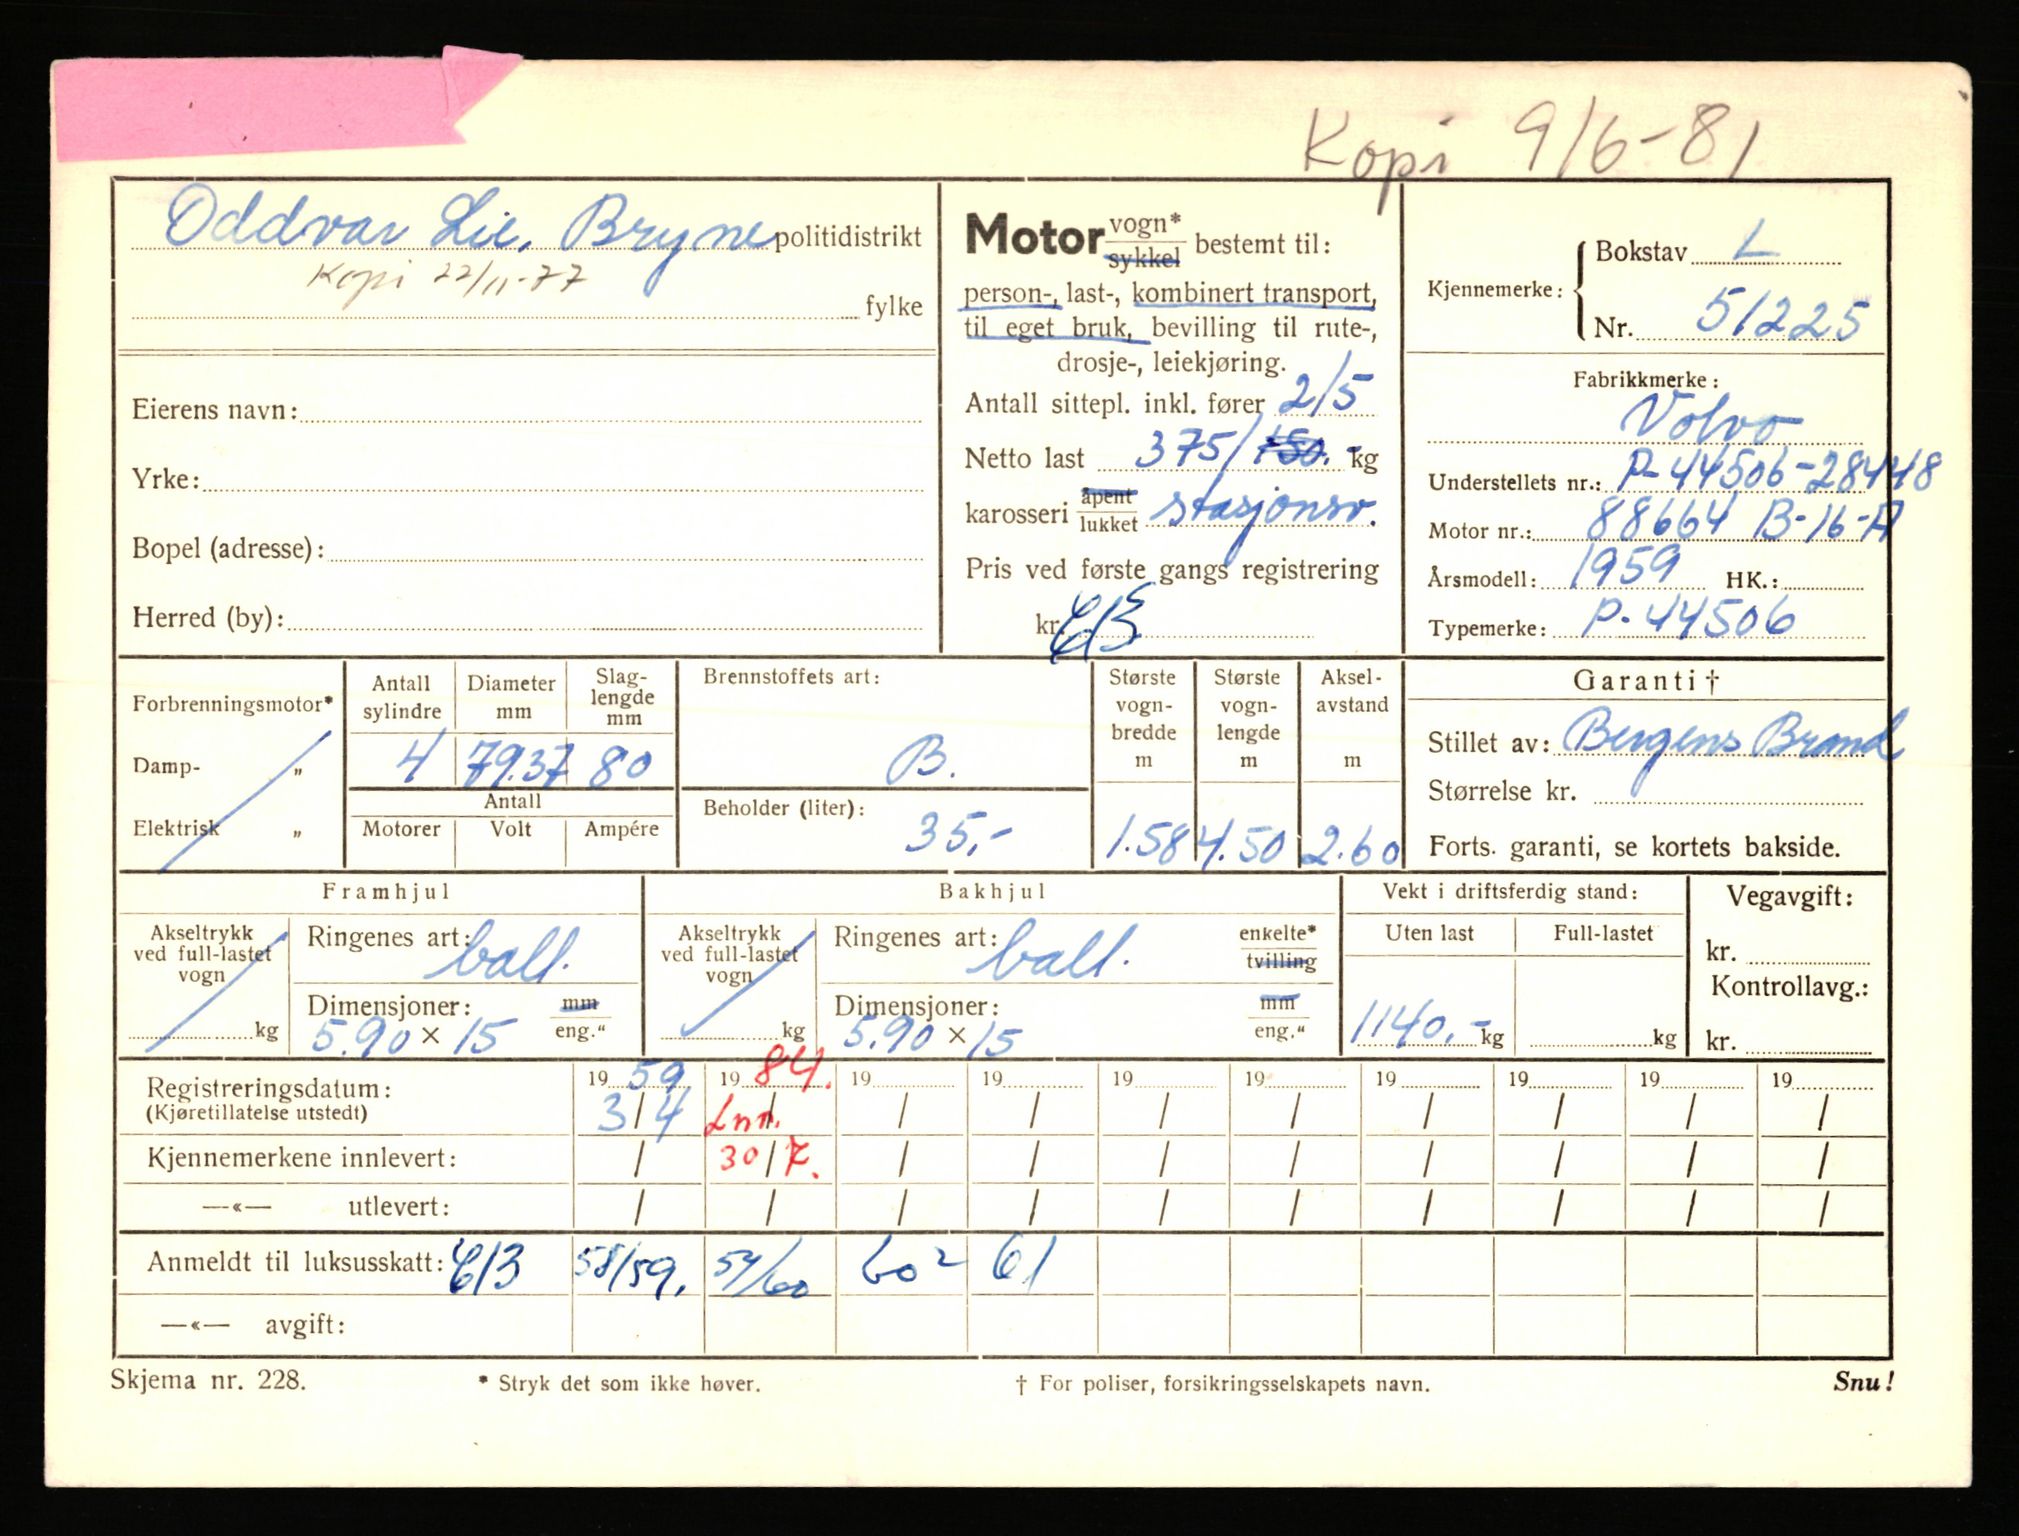 Kopi 9/6-81
Oddvar Lie, Bryne politidistrikt
Kopi 22/11-77
fylke
Eierens navn:
Yrke:
Bopel (adresse):
Herred (by):
Motor vogn* / sykkel bestemt til:
person-, last-, kombinert transport,
til eget bruk, bevilling til rute-,
drosje-, leiekjøring.
Antall sittepl. inkl. fører 2/5
Netto last 375/150. kg
karosseri åpent / lukket stasjonsv.
Pris ved første gangs registrering
kr.
Kjennemerke: Bokstav L
Nr. 51225
Fabrikkmerke:
Volvo
Understellets nr.: P-44506-28448
Motor nr.: 88664 B-16-A
Årsmodell: 1959 HK.:
Typemerke: P-44506
Forbrenningsmotor*
Damp- „
Elektrisk „
Antall sylindre Diameter mm Slag-lengde mm
4 79.37 80
Antall
Motorer Volt Ampére
Brennstoffets art:
B.
Beholder (liter):
35,-
Største vogn-bredde m
1.58
Største vogn-lengde m
4.50
Aksel-avstand m
2.60
Garanti †
Stillet av: Bergens Brand
Størrelse kr.
Forts. garanti, se kortets bakside.
Framhjul
Akseltrykk ved full-lastet vogn
kg
Ringenes art: ball.
Dimensjoner: mm
5.90 × 15 eng."
Bakhjul
Akseltrykk ved full-lastet vogn
kg
Ringenes art: ball. enkelte* / tvilling
Dimensjoner: mm
5.90 × 15 eng."
Vekt i driftsferdig stand:
Uten last Full-lastet
1140,- kg kg
Vegavgift:
kr.
Kontrollavg.:
kr.
Registreringsdatum: 19 59 19 84. 19 19 19 19 19 19 19 19
(Kjøretillatelse utstedt) 3/4 Lnn. / / / / / / / / /
Kjennemerkene innlevert: / 30/7. / / / / / / / /
—«— utlevert: / / / / / / / / / /
Anmeldt til luksusskatt: 58/59. 59/60 60² 61
—«— avgift:
Skjema nr. 228. * Stryk det som ikke høver. † For poliser, forsikringsselskapets navn. Snu!